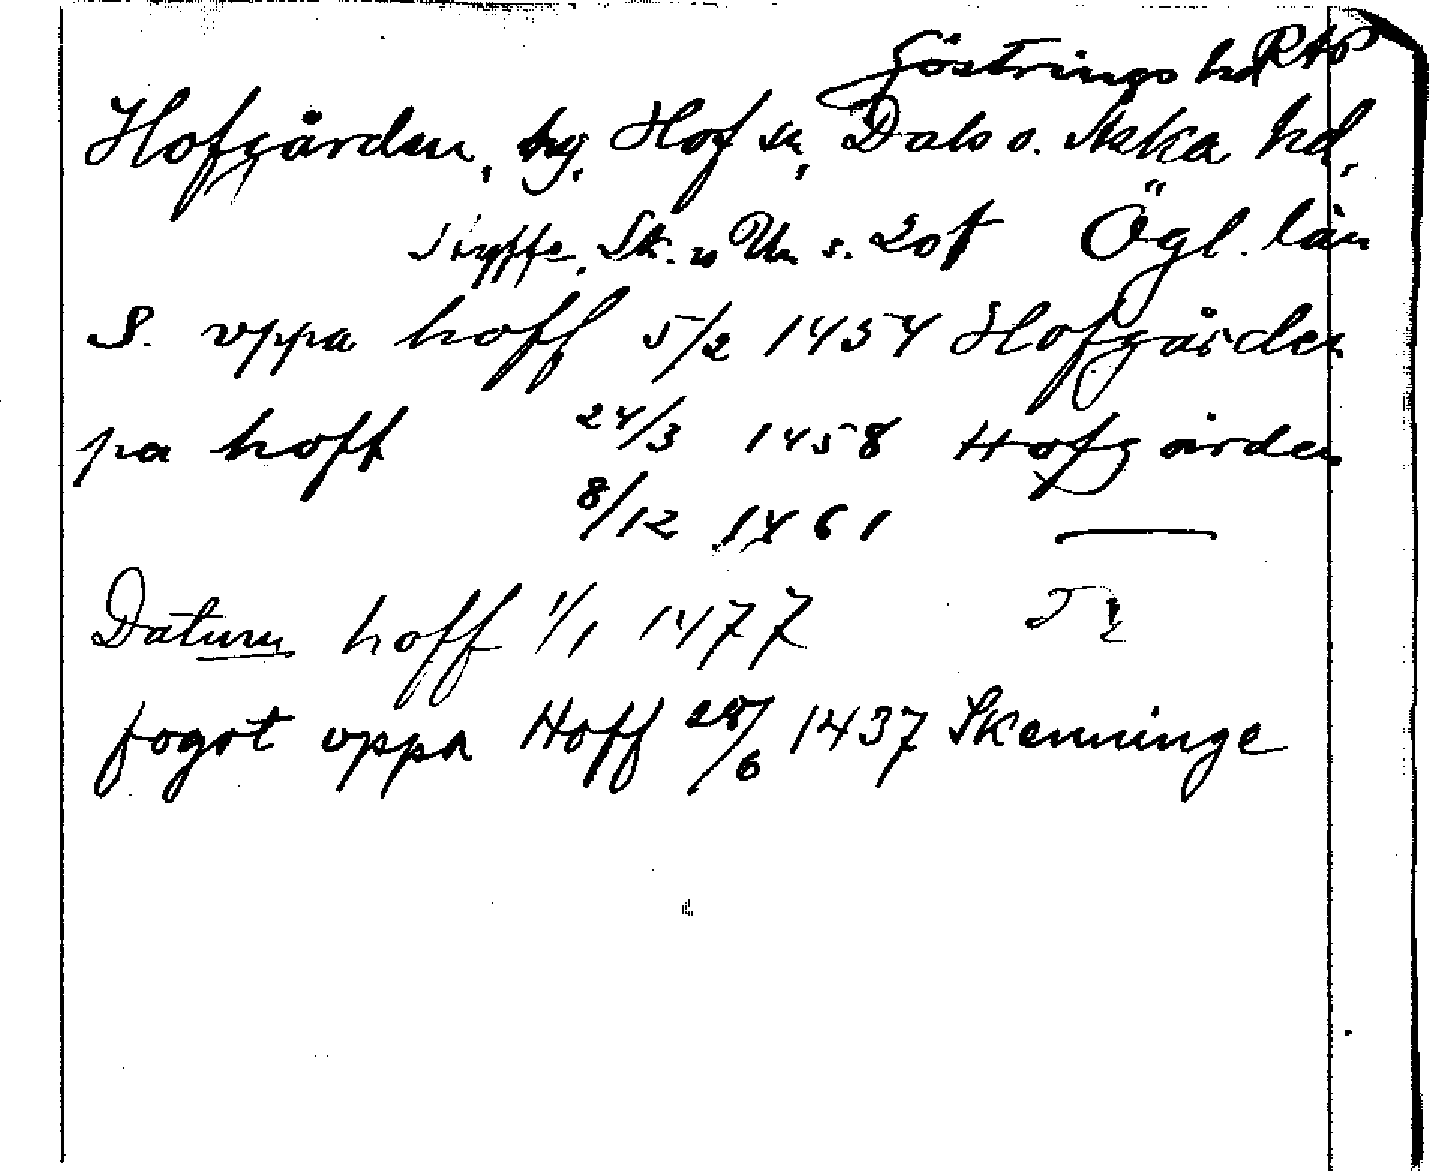 Göstrings hd RAP
Hofgården, by. Hof sn, Dals o. Aska hd,
Styffe, Sk. u Un. s. 207 Ögl. län
S. vppa hoff 5/2 1454 Hofgården
pa hoff 24/3 1458 Hofgården
8/12 1461 —
Datum hoff 1/1 1477
fogot vppa Hoff 28/6 1437 Skenninge